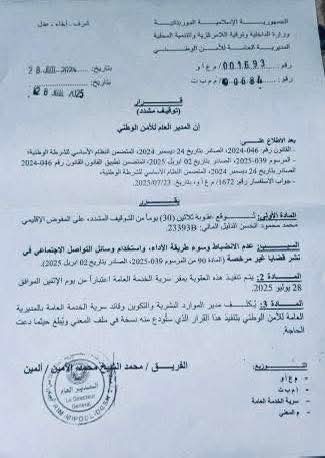 الجمهورية الإسلامية الموريتانية
شرف - إخاء - عدل
وزارة الداخلية وترقية اللامركزية والتنمية المحلية
المديرية العامة للأمن الوطني
رقم: 001693 م ع أ و
بتاريخ: 28 JUIL 2025
رقم: 00684 م م ب ت
بتاريخ: 28 JUIL 2025
قرار
(توقيف مشدد)
إن المدير العام للأمن الوطني
بعد الاطلاع على:
- القانون رقم: 046-2024، الصادر بتاريخ 24 ديسمبر 2024، المتضمن النظام الأساسي للشرطة الوطنية؛
- المرسوم 039-2025، الصادر بتاريخ 02 ابريل 2025، المتضمن تطبيق القانون القانون رقم 046-2024
الصادر بتاريخ 24 ديسمبر 2024، المتضمن النظام الأساسي للشرطة الوطنية؛
- جواب الاستفسار رقم 1672/ م ع أ و، بتاريخ 2025/07/23.
يقرر
المادة الأولى: توقع عقوبة ثلاثين (30) يوما من التوقيف المشدد، على المفوض الإقليمي
محمد محمود الحسن الدليل المالي: 23393B.
السبب: عدم الانضباط وسوء طريقة الأداء، واستخدام وسائل التواصل الاجتماعي في
نشر قضايا غير مرخصة (المادة 90 من المرسوم 039-2025، الصادر بتاريخ 02 ابريل 2025).
المادة 2: يتم تنفيذ هذه العقوبة بمقر سرية الخدمة العامة اعتبارا من يوم الإثنين الموافق
28 يوليو 2025.
المادة 3: يُكلف مدير الموارد البشرية والتكوين وقائد سرية الخدمة العامة بالمديرية
العامة للأمن الوطني بتنفيذ هذا القرار الذي ستُودع منه نسخة في ملف المعني ويُبلغ حيثما دعت
الحاجة.
الفريق / محمد الشيخ محمد الأمين / ألمين
المدير العام
Le Directeur
Général
التوزيع:
- م ع أ و
- م م ب ت
- سرية الخدمة العامة
- م المعني